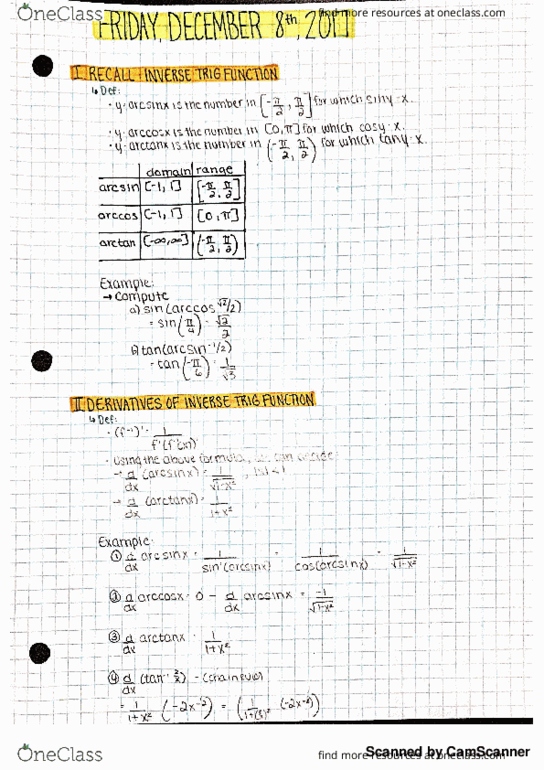 OneClass
find more resources at oneclass.com
FRIDAY, DECEMBER 8th, 201
I RECALL: INVERSE TRIG FUNCTION
↳ Def:
• y=arcsinx is the number in [-π/2, π/2] for which siny=x.
• y=arccosx is the number in [0,π] for which cosy=x.
• y=arctanx is the number in (-π/2, π/2) for which tany=x.
domain range
arcsin [-1,1] [-π/2, π/2]
arccos [-1,1] [0,π]
arctan [-∞,∞] (-π/2, π/2)
Example:
→ Compute
a) sin(arccos √2/2)
= sin(π/4) = √2/2
b) tan(arcsin -1/2)
= tan(-π/6) = 1/√3
II DERIVATIVES OF INVERSE TRIG FUNCTION
↳ Def:
• (f⁻¹)' = 1/f'(f⁻¹(x))
• Using the above formula, can
→ d/dx (arcsinx) = 1/√1-x², |x|<1
→ d/dx (arctanx) = 1/1+x²
Example:
① d/dx arcsinx = 1/sin'(arcsinx) = 1/cos(arcsinx) = 1/√1-x²
② d/dx arccosx = 0 - d/dx arcsinx = -1/√1-x²
③ d/dx arctanx = 1/1+x²
④ d/dx (tan⁻¹ 2/x) - (chain rule)
= 1/1+x² (-2x⁻²) = (1/1+( )² (-2x⁻²))
Scanned by CamScanner
OneClass
find more resources at oneclass.com